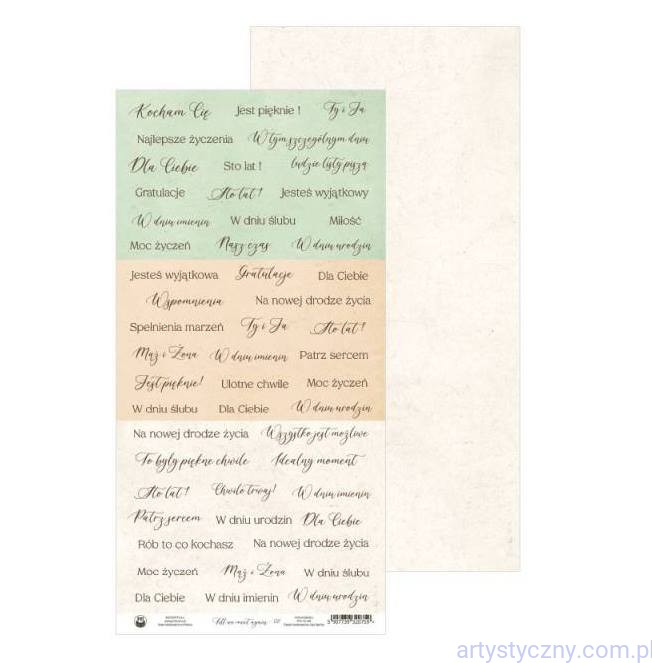 Kocham Cię Jest pięknie ! Ty i Ja
Najlepsze życzenia W tym szczególnym dniu
Dla Ciebie Sto lat ! ludzie listy piszą
Gratulacje Sto lat ! Jesteś wyjątkowy
W dniu imienin W dniu ślubu Miłość
Moc życzeń Nasz czas W dniu urodzin
Jesteś wyjątkowa Gratulacje Dla Ciebie
Wspomnienia Na nowej drodze życia
Spełnienia marzeń Ty i Ja Sto lat !
Mąż i Żona W dniu imienin Patrz sercem
Jest pięknie! Ulotne chwile Moc życzeń
W dniu ślubu Dla Ciebie W dniu urodzin
Na nowej drodze życia Wszystko jest możliwe
To były piękne chwile Idealny moment
Sto lat ! Chwilo trwaj! W dniu imienin
Patrz sercem W dniu urodzin Dla Ciebie
Rób to co kochasz Na nowej drodze życia
Moc życzeń Mąż i Żona W dniu ślubu
Dla Ciebie W dniu imienin W dniu urodzin
Till we meet again
artystyczny.com.pl